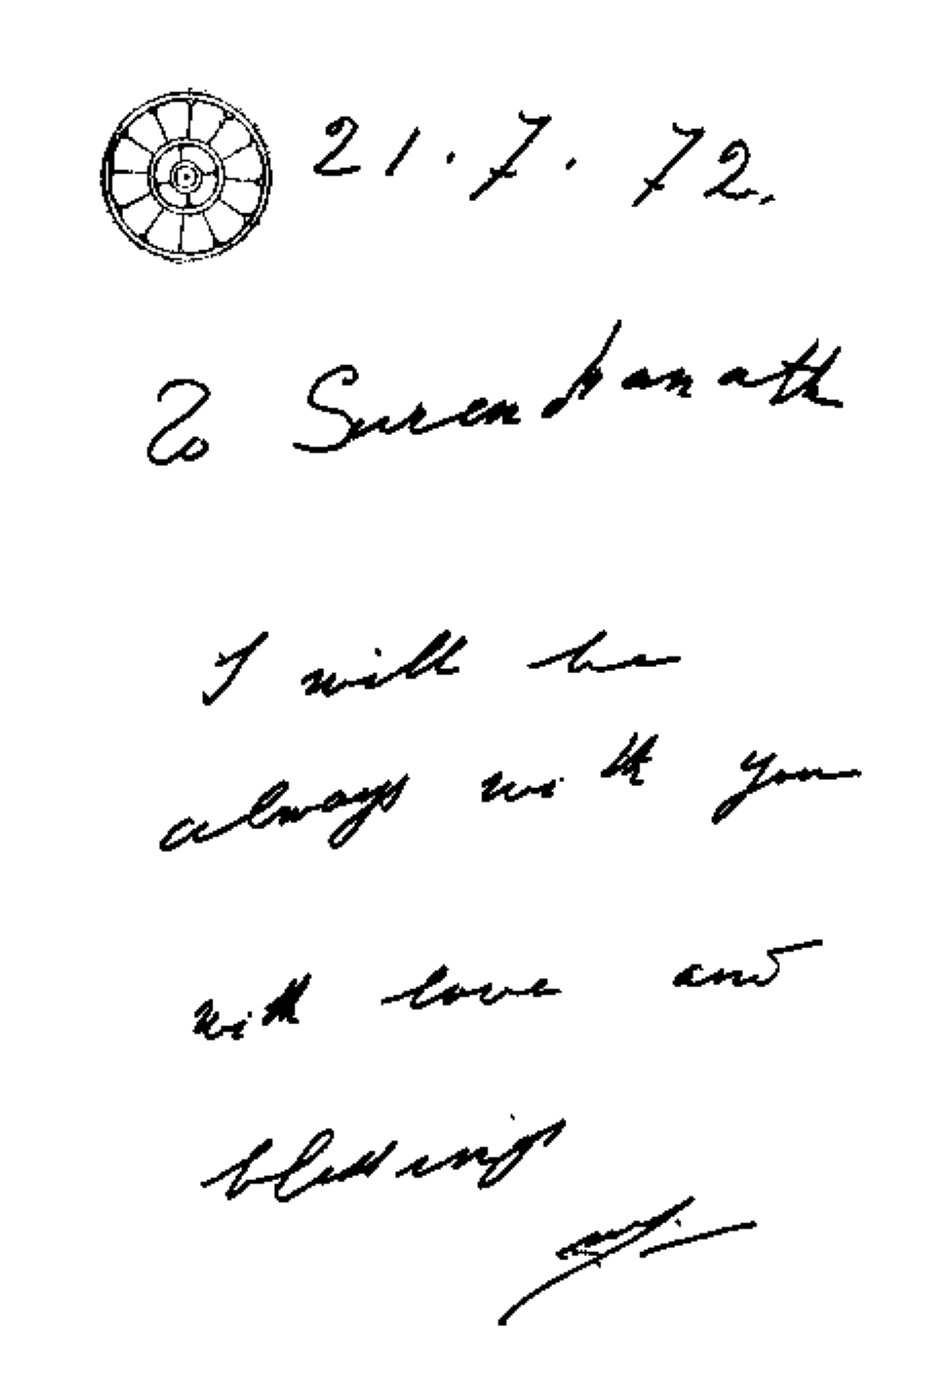 21.7.72.
To Surendranath
I will be
always with you
with love and
blessings